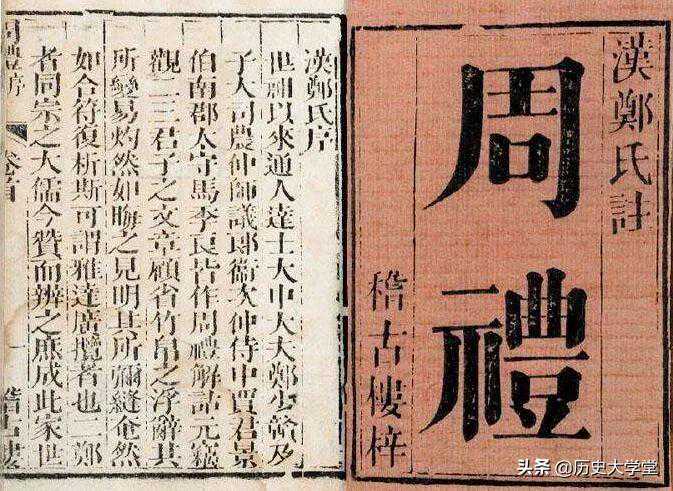 漢鄭氏註
周禮
稽古樓梓
漢鄭氏序
世祖以來通人達士大中大夫鄭少贛及
子大司農仲師議郎衛次仲侍中賈君景
伯南郡太守馬季長皆作周禮解詁元竊
觀二三君子之文章顧省竹帛之浮辭其
所變易灼然如晦之見明其所彌縫奄然
如合符復析斯可謂雅達廣攬者也二鄭
者同宗之大儒今贊而辨之庶成此家世
周禮序 卷首 一 稽古樓
头条 @历史大学堂